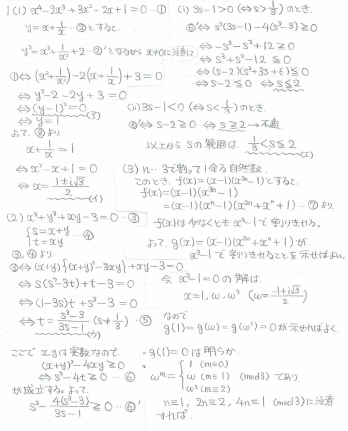 1 (1) x⁴-2x³+3x²-2x+1=0 …①
y=x+1/x …②とすると
y²=x²+1/x²+2 …②'となるから x≠0に注意して
①⇔(x²+1/x²)-2(x+1/x)+3=0
⇔ y²-2-2y+3=0
⇔ (y-1)²=0 (ア)
⇔ y=1
よって、②より
x+1/x=1
⇔ x²-x+1=0
⇔ x=(1±i√3)/2 (イ)
(2) x³+y³+xy-3=0 …③
{s=x+y
t=xy …④
③,④より
③⇔ (x+y){(x+y)²-3xy}+xy-3=0
⇔ s(s²-3t)+t-3=0
⇔ (1-3s)t+s³-3=0
⇔ t=(s³-3)/(3s-1) (s≠1/3) …⑤
(ウ)
ここで x,yは実数なので
(x+y)²-4xy≧0
⇔ s²-4t≧0 …⑥
が成立する。よって、
s²-4(s³-3)/(3s-1)≧0 …⑥'
(i) 3s-1>0 (⇔s>1/3)のとき.
⑥'⇔ s²(3s-1)-4(s³-3)≧0
⇔ -s³-s²+12≧0
⇔ s³+s²-12≦0
⇔ (s-2)(s²+3s+6)≦0
⇔ s-2≦0 ⇔ s≦2
(ii) 3s-1<0 (⇔s<1/3)のとき.
⑥'⇔ s-2≧0 ⇔ s≧2 →不適
以上から sの範囲は 1/3<s≦2
(エ)
(3) n…3で割って1余る自然数.
このとき. f(x)=(x-1)(x³ⁿ-1)とすると
f(x)=(x-1)(x³ⁿ-1)
=(x-1)(xⁿ-1)(x²ⁿ+xⁿ+1) …⑦より
f(x)は少なくとも xⁿ-1で割りきれる.
よって、g(x)=(x-1)(x²ⁿ+xⁿ+1)が
x³-1で割りきれることを示せばよい.
今 x³-1=0の解は.
x=1,ω,ω² (ω=(-1+i√3)/2)
なので
g(1)=g(ω)=g(ω²)=0が示せればよく
・g(1)=0は明らか.
ωᵐ={1 (m≡0)
ω (m≡1) (mod3)であり
ω² (m≡2)
n≡1, 2n≡2, 4n≡1 (mod3)に注意
すれば.